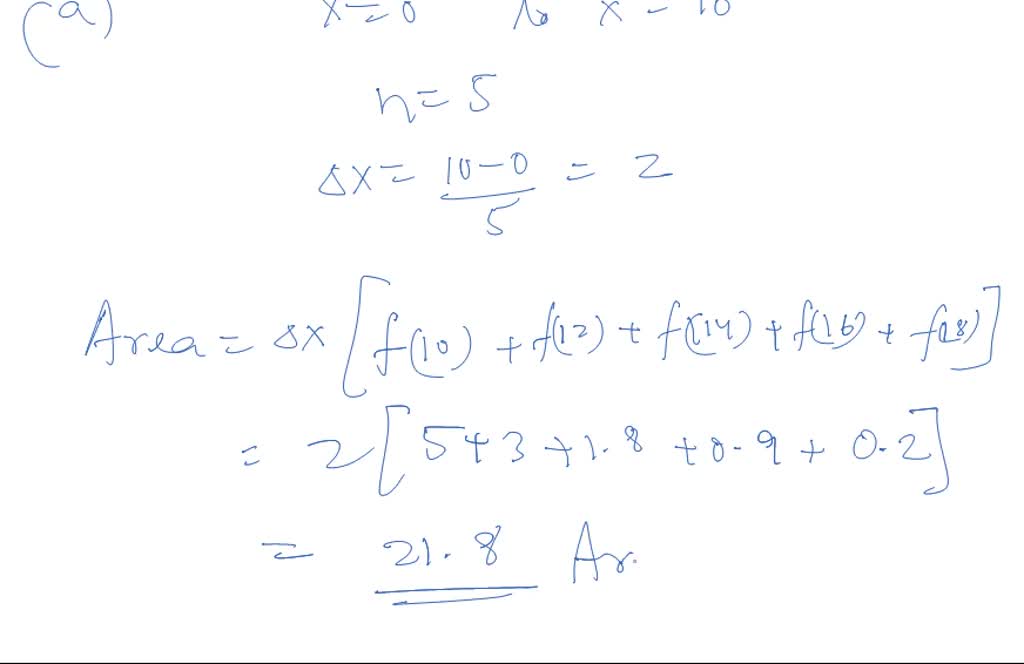 (a) x=0 to x = 10
n=5
Δx= 10-0/5 = 2
Area = Δx [f(10) + f(12) + f(14) + f(16) + f(18)]
= 2 [5+3+1.8+0.9+0.2]
= 21.8 Ar.